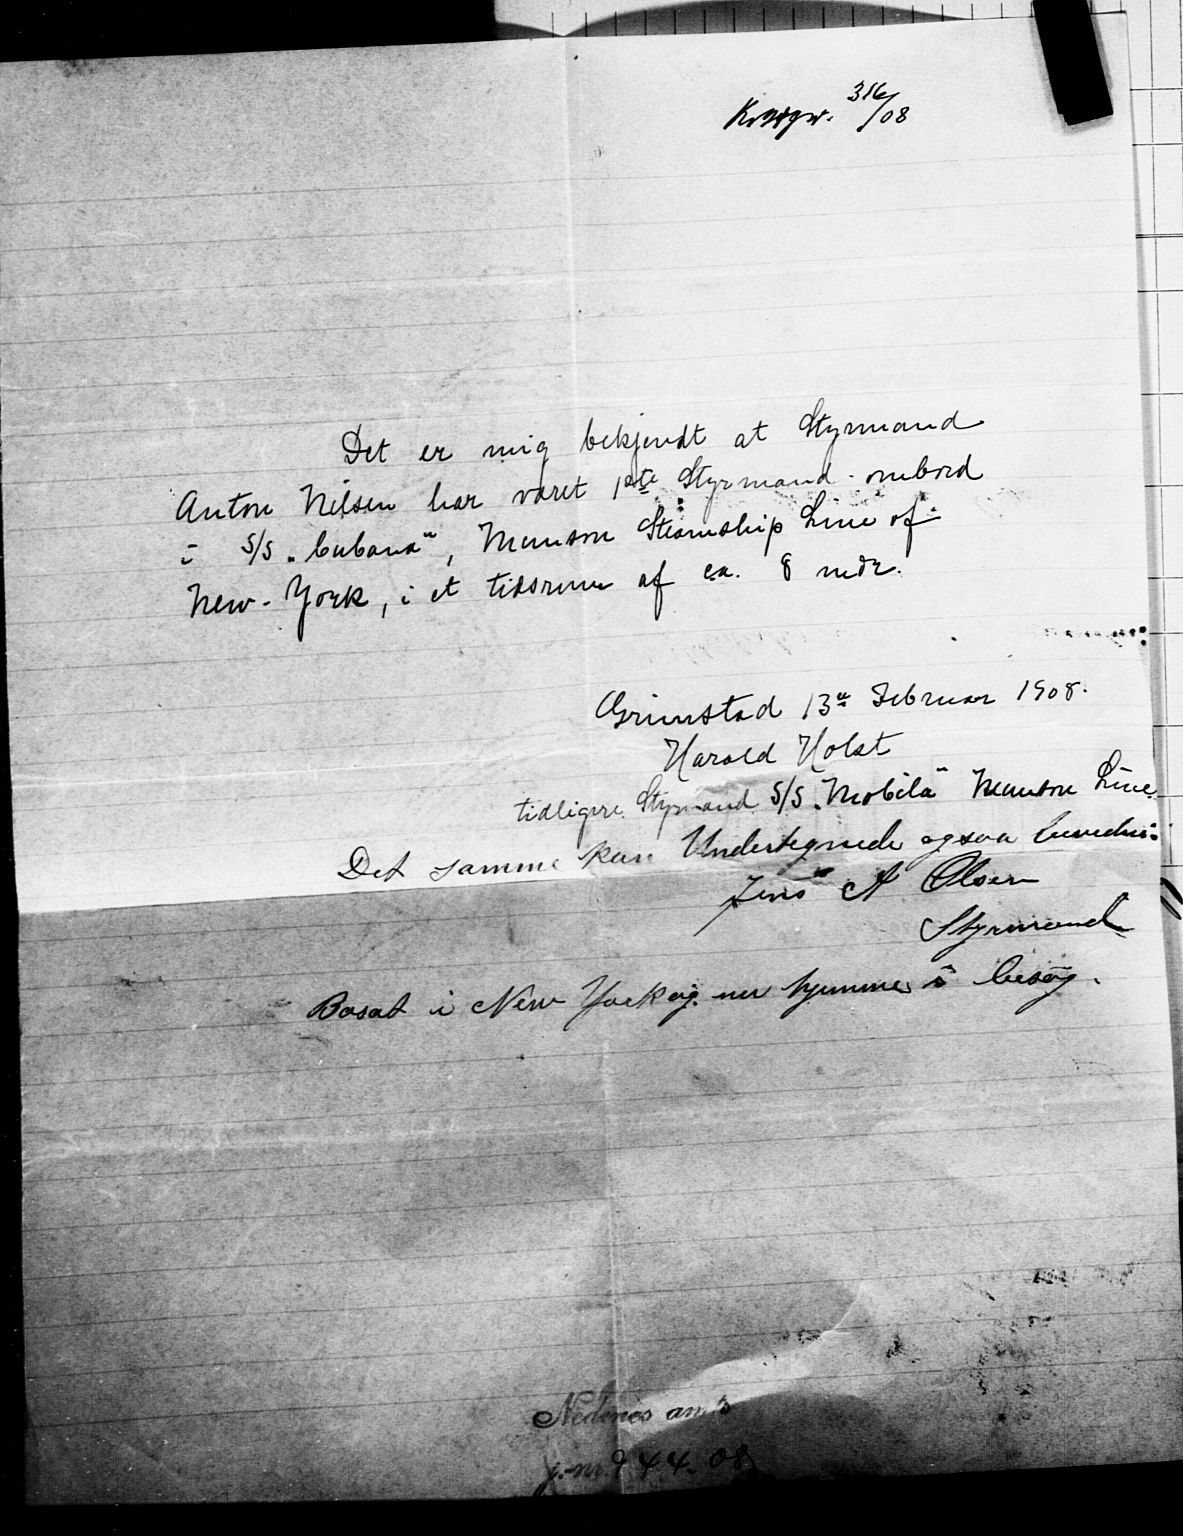 316/08
Det er mig bekjendt at Styrmand
Anton Nilsen har været 1ste Styrmand ombord
i S/S „Cubana“, Munson Steamship Line of
New-York, i et tidsrum af ca. 8 mdr.
Grimstad 13de Februar 1908.
Harald Holst
tidligere Styrmand S/S „Mobila“ Munson Line
Det samme kan Undertegnede ogsaa bevidne:
Jens A Olsen
Styrmand
Bosat i New York og nu hjemme i besøg.
Nedenes amts
j.-nr. 944.08